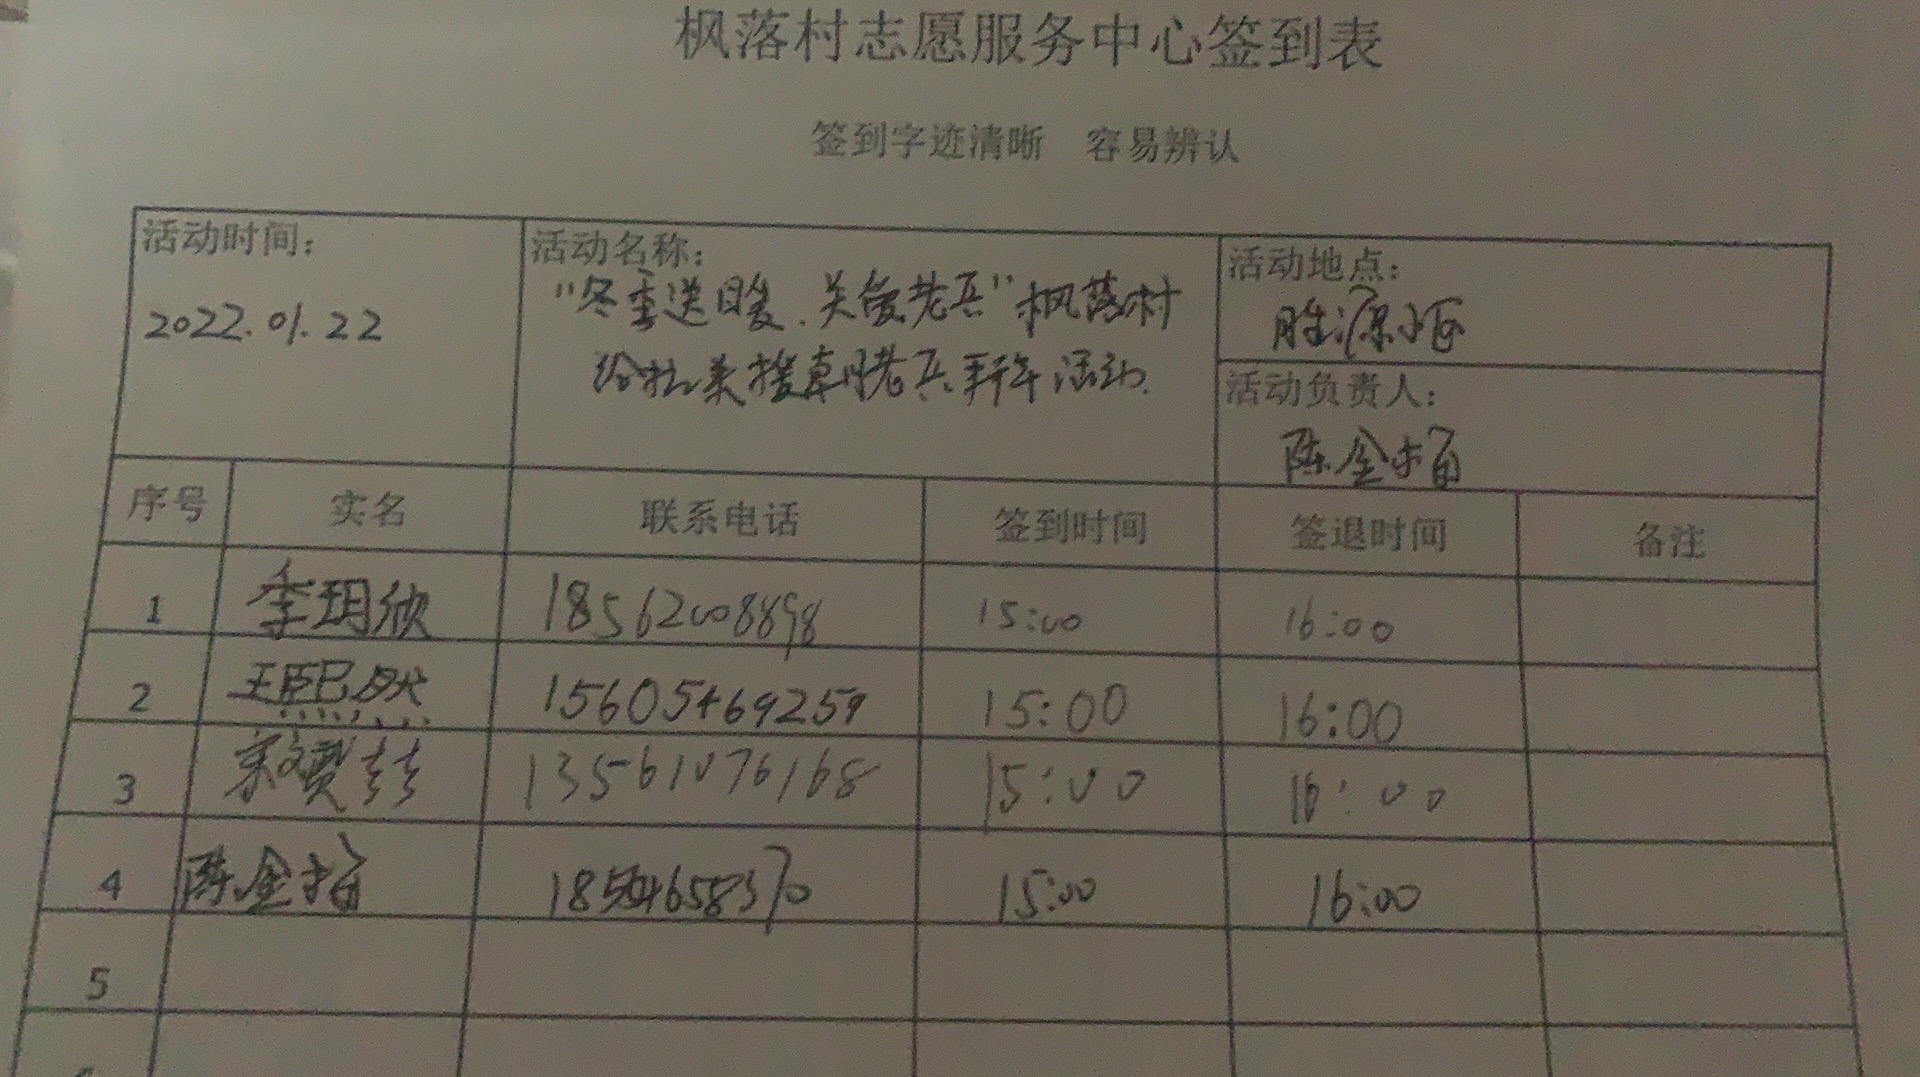 枫落村志愿服务中心签到表
签到字迹清晰 容易辨认
活动时间: 活动名称: 活动地点:
2022.01.22 “冬季送暖、关爱老兵”枫落村 胜源小区
给抗美援朝老兵拜年活动.
活动负责人:
陈金
序号 实名 联系电话 签到时间 签退时间 备注
1 李玥欣 18562008898 15:00 16:00
2 王熙然 15605469259 15:00 16:00
3 喆 13561076168 15:00 16:00
4 陈金 15:00 16:00
5